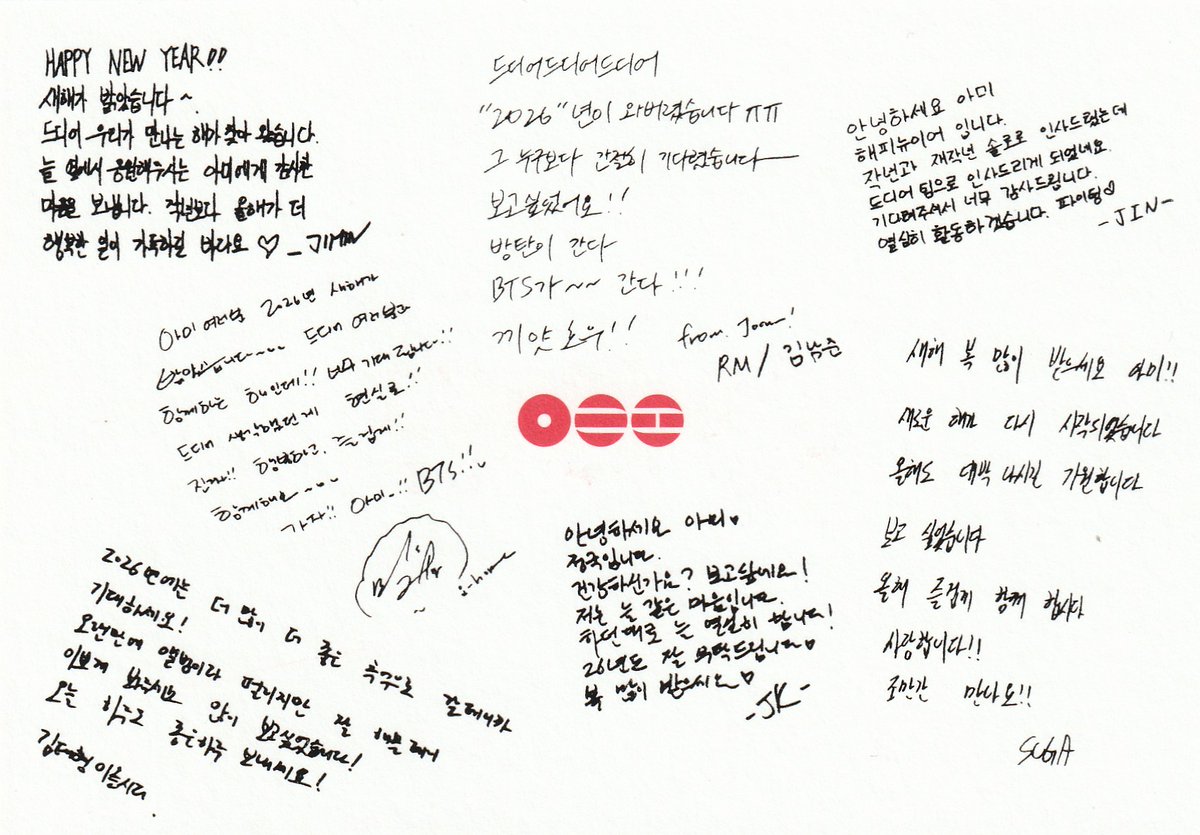 HAPPY NEW YEAR!!
새해가 밝았습니다~.
드디어 우리가 만나는 해가 찾아 왔습니다.
늘 옆에서 응원해주시는 아미에게 감사한
마음을 보냅니다. 작년보다 올해가 더
행복한 일이 가득하길 바라요 ♡ - JIMIN
드디어드디어드디어
"2026"년이 와버렸습니다 ㅠㅠ
그 누구보다 간절히 기다렸습니다
보고싶었어요!!
방탄이 간다
BTS가~~ 간다!!!
끼얏호우!!
from. Joon!
RM / 김남준
안녕하세요 아미
해피뉴이어 입니다.
작년과 재작년 솔로로 인사드렸는데
드디어 팀으로 인사드리게 되었네요.
기다려주셔서 너무 감사드립니다.
열심히 활동하겠습니다. 파이팅♡
-JIN-
아미 여러분 2026년 새해가
밝았습니다~~ 드디어 여러분과
함께하는 해인데!! 너무 기대됩니다!!
드디어 생각했던게 현실로!!
진짜!! 행복하고, 즐겁게!!
함께해요~~
가자!! 아미~!! BTS!!
j-hope
새해 복 많이 받으세요 아미!!
새로운 해가 다시 시작되었습니다
올해도 대박 나시길 기원합니다
보고 싶었습니다
올해 즐겁게 함께 합시다
사랑합니다!!
조만간 만나요!!
SUGA
2026년에는 더 많이 더 좋은 추억으로 갈테니까
기대하세요!
오랜만에 앨범이라 떨리지만 잘 해볼테니
이쁘게 봐주시요 많이 보고싶었습니다!
오늘 하루도 좋은하루 보내세요!
김태형 이올시다.
안녕하세요 아미♥
정국입니다.
건강하신가요? 보고싶네요!
저는 늘 같은 마음입니다.
하던대로 늘 열심히 합니다!
26년도 잘 부탁드립니다♥
복 많이 받으세요♥
-JK-